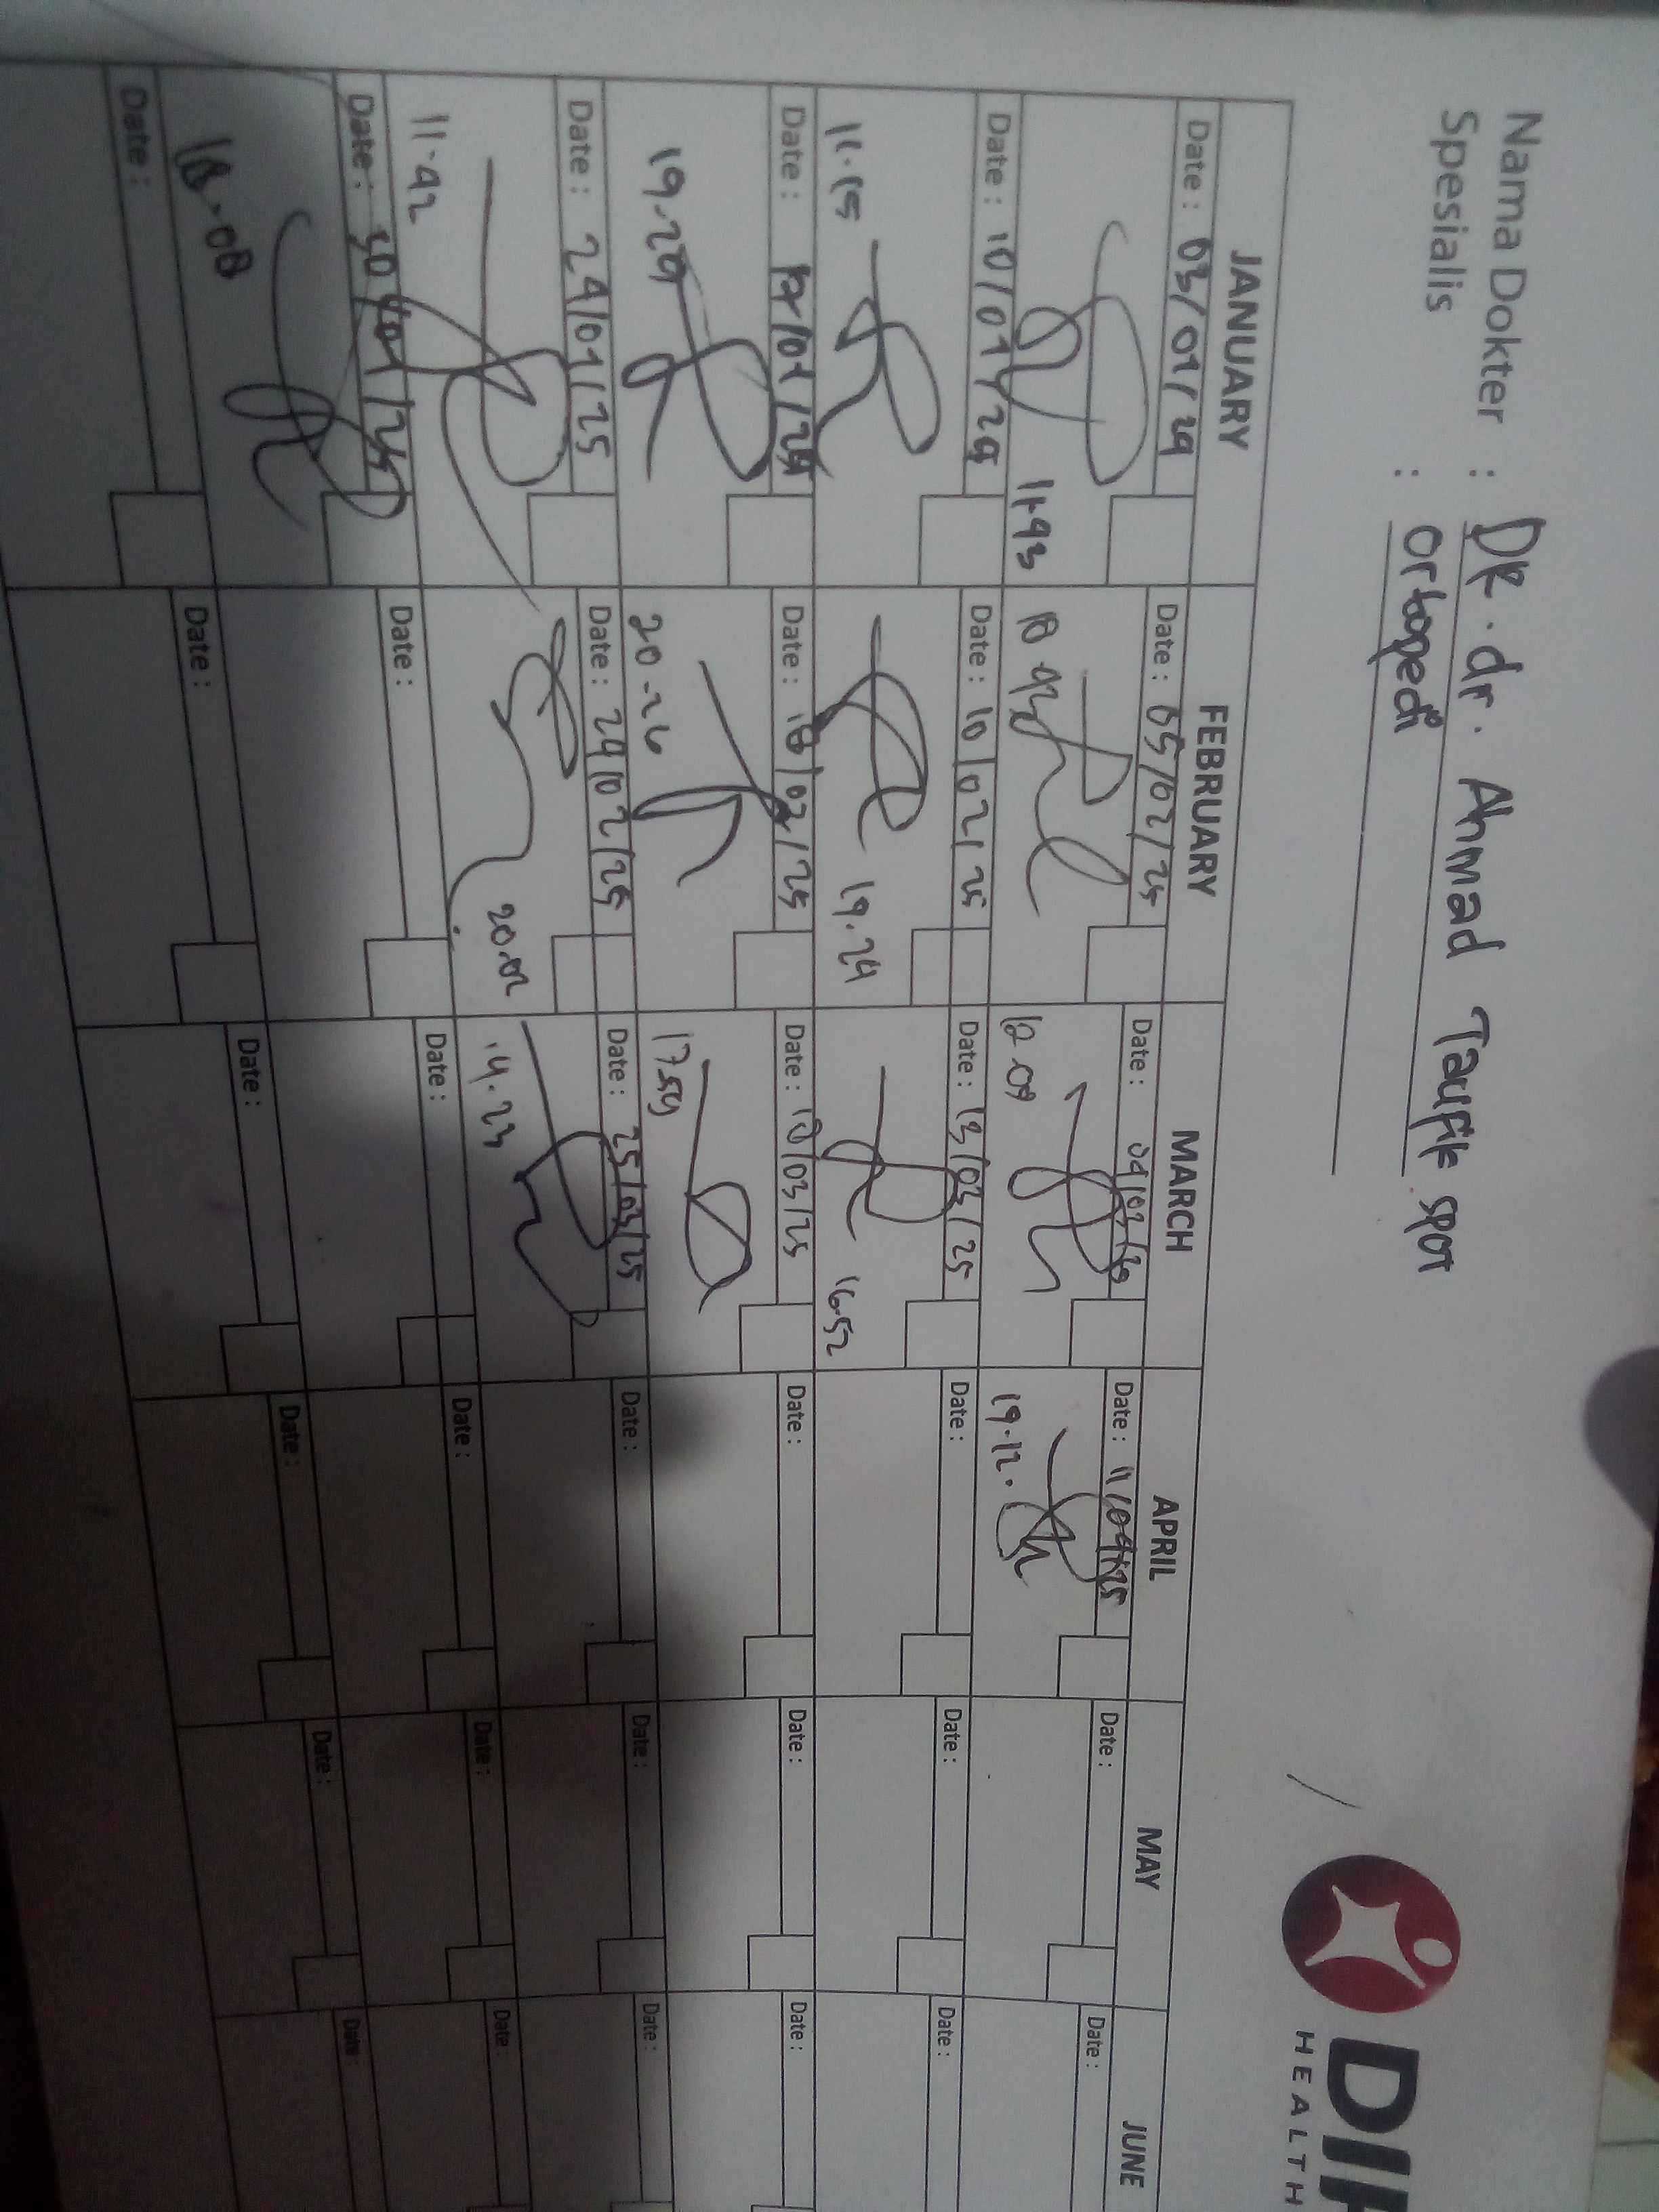 Nama Dokter : DR. dr. Ahmad Taufik SPOT
Spesialis : Ortopedi
DIP
HEALTH
JANUARY FEBRUARY MARCH APRIL MAY JUNE
Date : 03/01/24 Date : 05/02/25 Date : 04/03/25 Date : 11/04/25 Date : Date :
11.43 18.43 12.09 19.12.
Date : 10/01/24 Date : 10/02/25 Date : 13/03/25 Date : Date : Date :
11.15 19.24 16.52
Date : Date : 18/02/25 Date : 18/03/25 Date : Date : Date :
19.20 20.26 17.59
Date : 24/01/25 Date : 24/02/25 Date : 25/03/25 Date : Date : Date :
11.42 20.02 14.23
Date : 30/01/25 Date : Date : Date : Date : Date :
18.08
Date : Date : Date : Date : Date : Date :